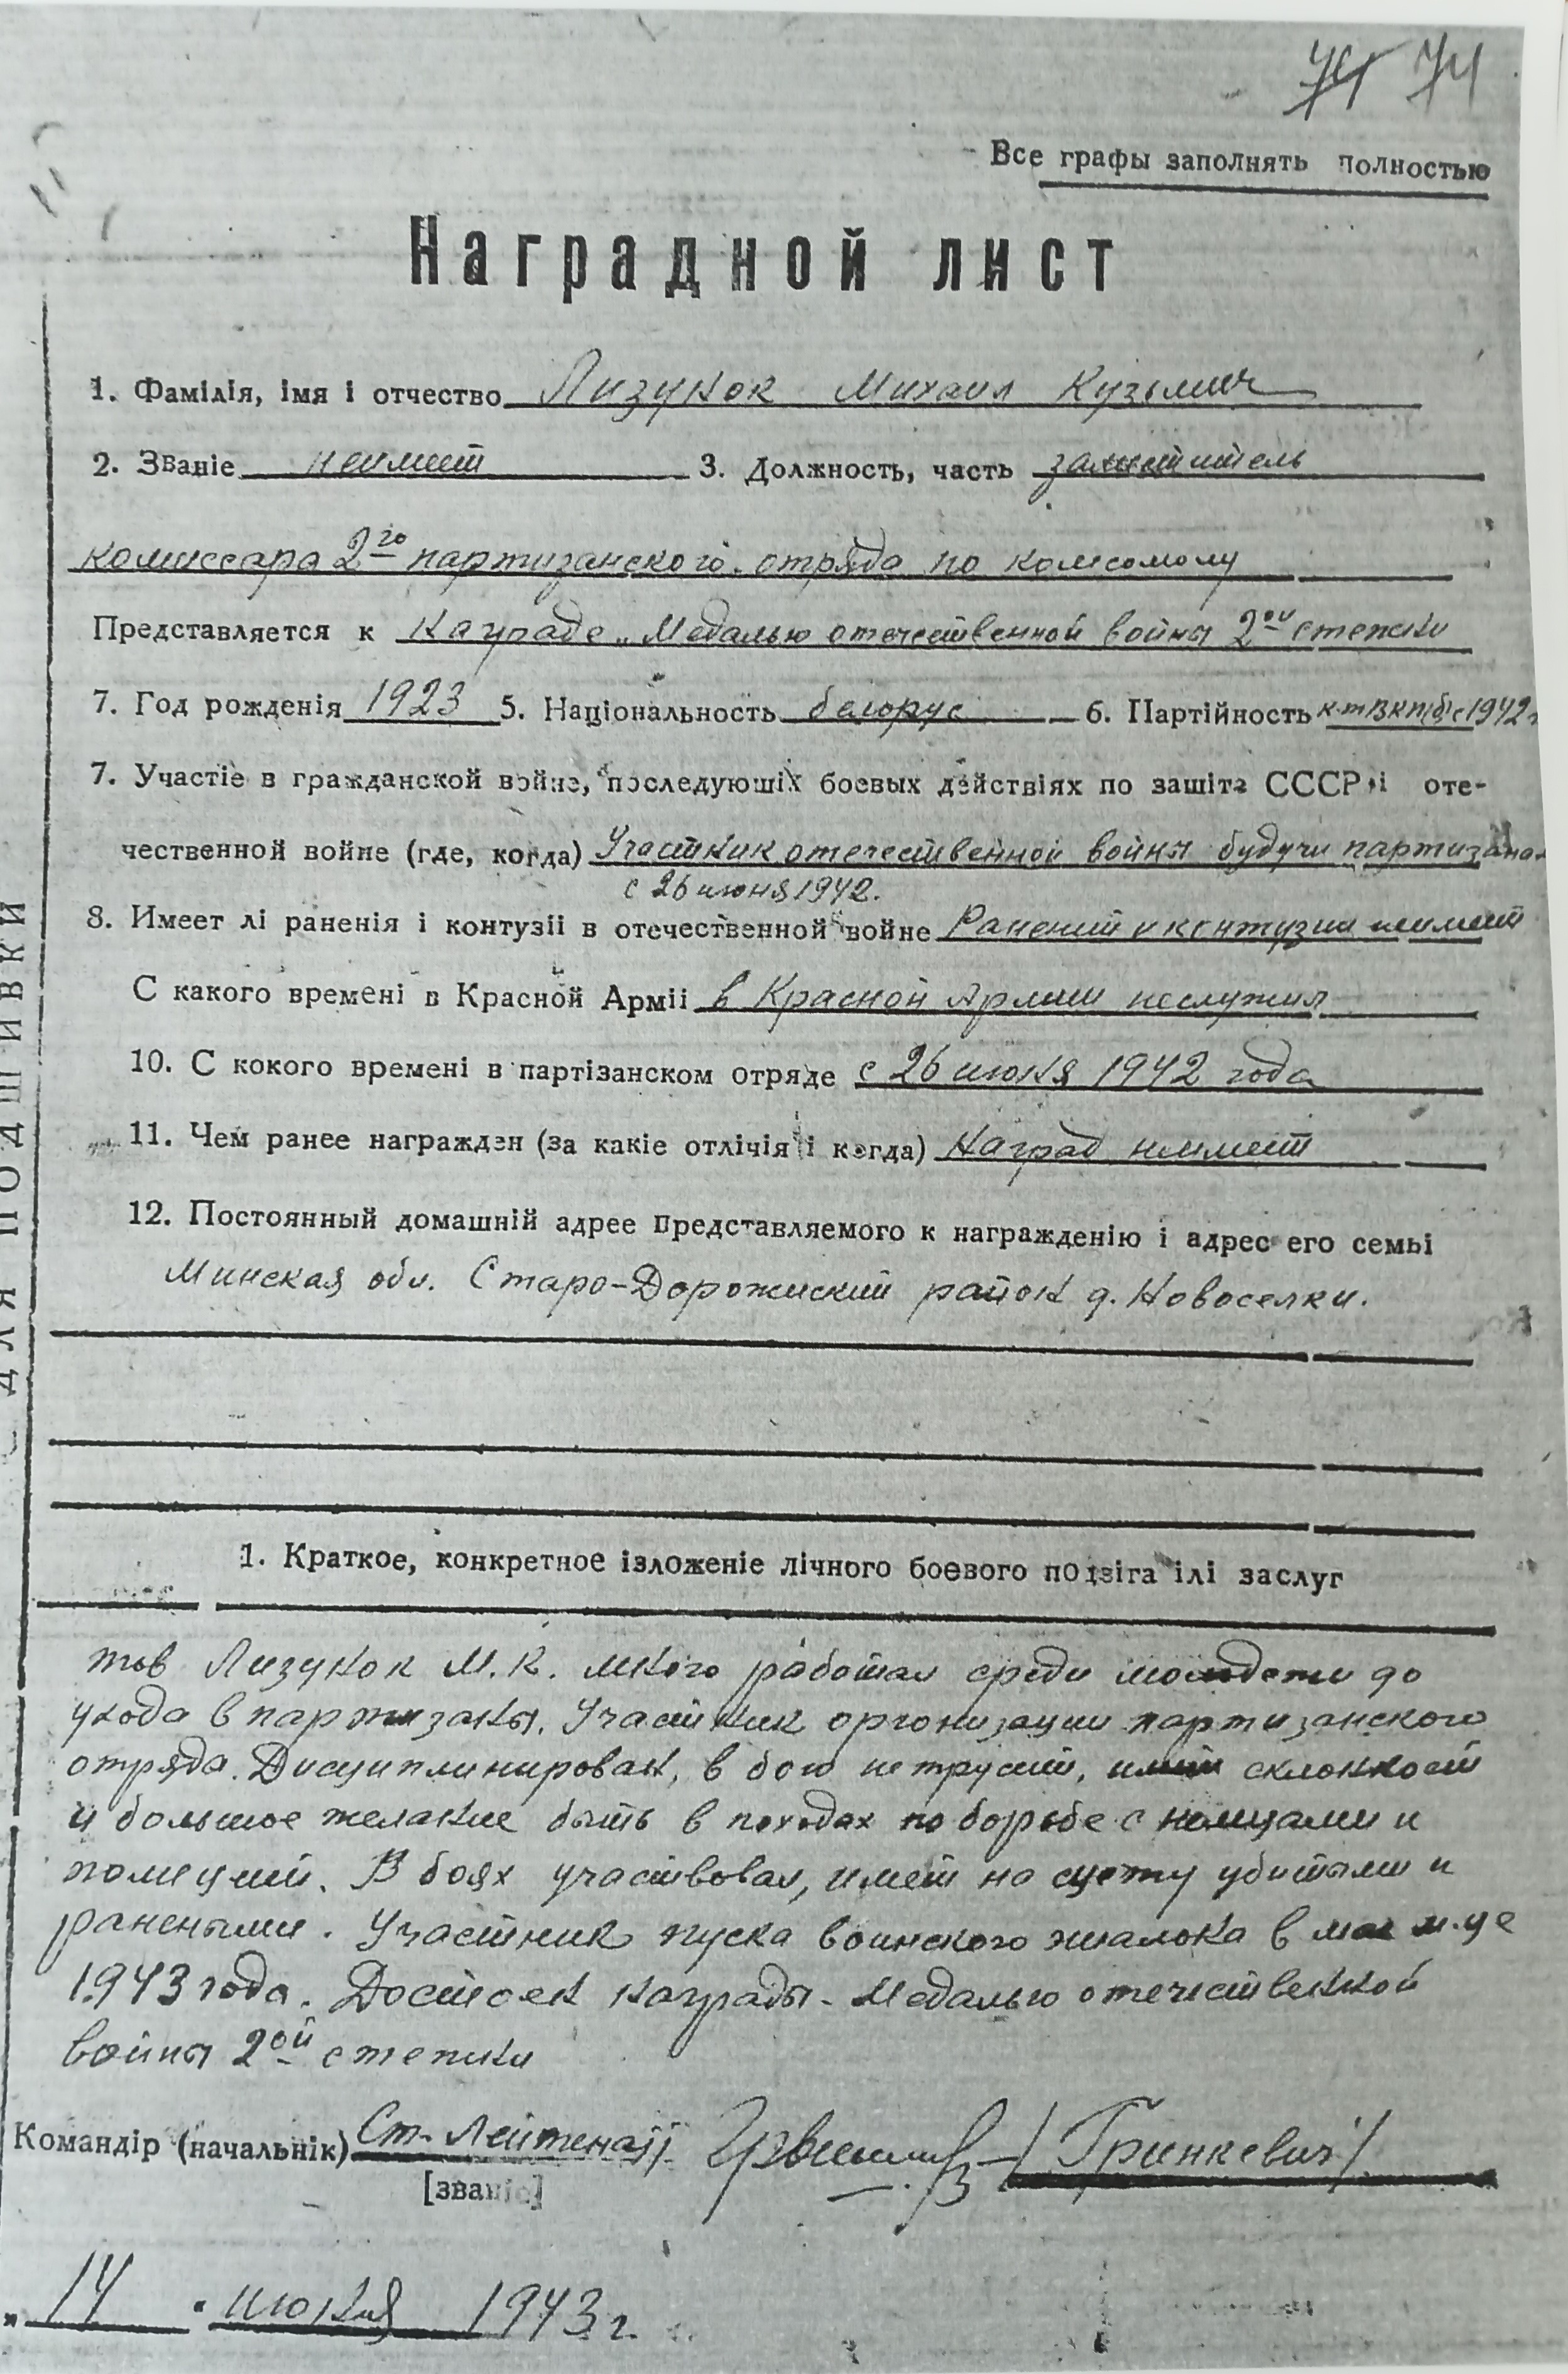 74 74
Все графы заполнять полностью
Наградной лист
1. Фамілія, імя і отчество Лизунок Михаил Кузьмич
2. Званіе неимеет 3. Должность, часть заместитель
комиссара 2го партизанского отряда по комсомолу
Представляется к награде „Медалью отечественной войны 2ой степени
7. Год рожденія 1923 5. Національность белорус 6. Партійность к-т ВКП(б) с 1942 г
7. Участіе в гражданской войне, последующіх боевых действіях по защіте СССР і оте-
чественной войне (где, когда) Участник отечественной войны будучи партизаном
с 26 июня 1942.
8. Имеет лі раненія і контузіі в отечественной войне Ранений и контузии неимеет
С какого времені в Красной Арміі в Красной Армии неслужил
10. С кокого времені в партізанском отряде с 26 июня 1942 года
11. Чем ранее награжден (за какіе отлічія і когда) Наград неимеет
12. Постоянный домашній адрее представляемого к награжденію і адрес его семьі
Минская обл. Старо-Дорожский район д. Новоселки.
ДЛЯ ПОДШИВКИ
1. Краткое, конкретное ізложеніе лічного боевого подвіга ілі заслуг
тов Лизунок М.К. много работал среди молодежи до
ухода в партизаны. Участник организации партизанского
отряда. Дисциплинирован, в бою нетрусит, имеет склонност
и большое желание быть в походах по борьбе с немцами и
полицией. В боях участвовал, имеет на счету убитыми и
ранеными. Участник пуска воинского эшалона в мае м-це
1943 года. Достоен награды - Медалью отечественной
войны 2ой степени
Командір (начальнік) Ст. Лейтенант /Гринкевич/
[званіе]
„14 " июня 1943 г.